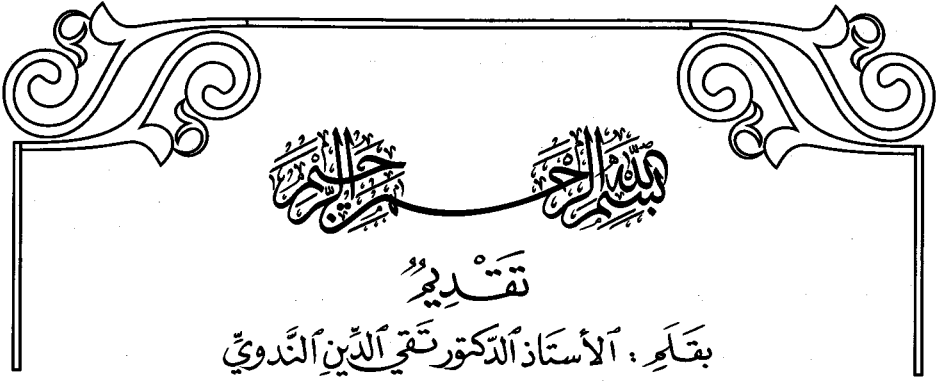 بِسْمِ اللهِ الرَّحْمٰنِ الرَّحِيْمِ
تَقْدِيمٌ
بِقَلَمِ : الأستَاذ الدّكتور تَقي الدِّينِ النَّدويِّ